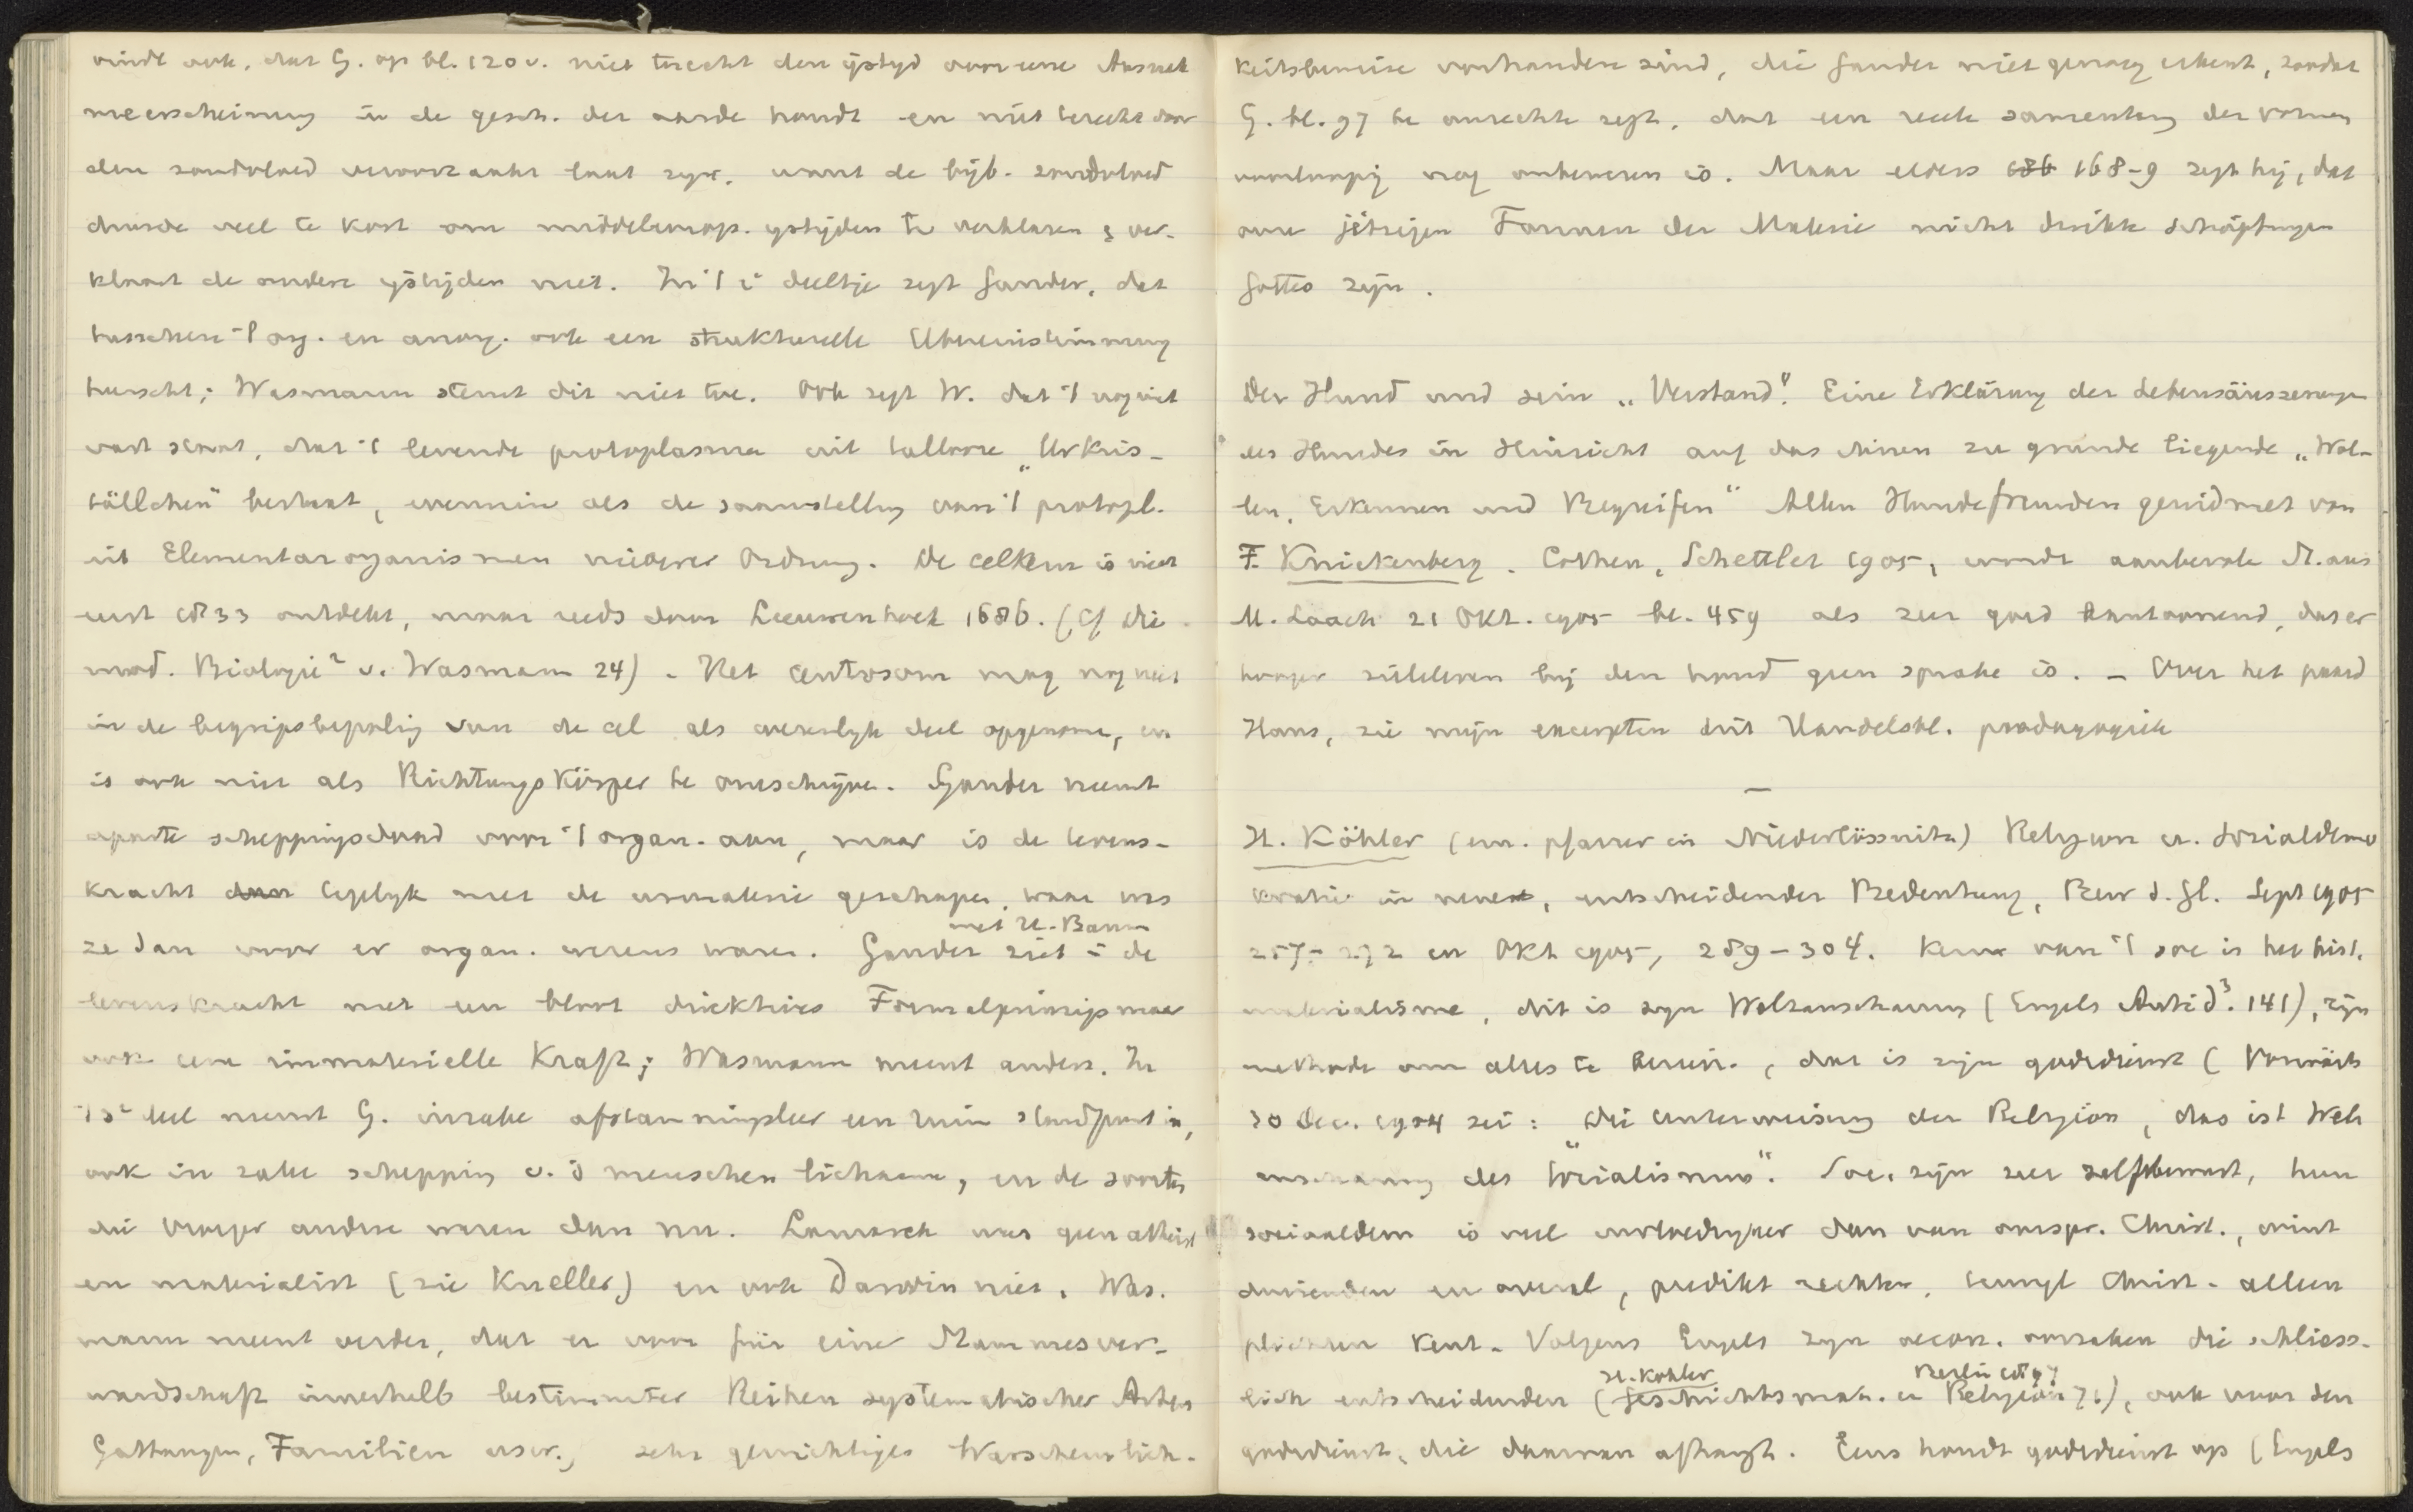 vindt ook, dat G. op bl. 120 v. niet terecht den ijstyd voor eene Ausnah
meerscheinung in de gesch. der aarde houdt en niet terecht door
den zondvloed veroorzaakt laat zyn, want de bijb. zondvloed
duurde veel te kort om middeleurop. ystijden te verklaren & ver-
klaart de andere ijstijden niet. In 't 1e deeltje zegt Gander, dat
tusschen 't org. en anorg. ook een strukturelle Übereinstimmung
heerscht; Wasmann stemt dit niet toe. Ook zegt W. dat 't nog niet
vast staat, dat 't levende protoplasma uit tallooze „Urkris-
tällchen" bestaat, evenmin als de samenstelling van 't protopl.
uit Elementarorganismen niederer Ordnung. De celkern is niet
eerst 1833 ontdekt, maar reeds door Leeuwenhoek 1686. (Cf die
mod. Biologie² v. Wasmann 24). Het centrosom mag nog niet
in de begripsbepaling van de cel als wezenlyk deel opgenomen, en
is ook niet als Richtungskörper te omschrijven. Gander neemt
aparte scheppingsdaad voor 't organ. aan, maar is de levens-
kracht dan tegelyk met de urmaterie geschapen, waar was
met H. Bann
ze dan voor er organ. wezens waren. Gander ziet in de
levenskracht niet een bloot direktives Formalprinzip maar
ook eene immaterielle Kraft; Wasmann meent anders. In
't 3e deel neemt G. inzake afstammingsleer een ruim standpunt in,
ook in zake schepping v. d menschen lichaam, en de soorten
die vroeger andere waren dan nu. Lamarck was geen atheist
en materialist (zie Kneller) en ook Darwin niet. Was.
mann meent verder, dat er voor für eine Stammesver-
wandschaft innerhalb bestimmter Reihen systematischer Arten
Gattungen, Familien usw., sehr gewichtiges Warscheinlich-
keitsbeweise vorhanden sind, die Gander niet genoeg erkent, zoodat
G. bl. 97 te onrechte zegt, dat een reele samenhang der vormen
voorloopig nog onbewezen is. Maar elders 168-9 zegt hij, dat
onze jetzigen Formen der Materie nicht direkte Schöpfungen
Gottes zijn.
Der Hund und sein „Verstand". Eine Erklärung der Lebensäusserungen
des Hundes in Hinsicht auf das ihnen zu grunde liegende „Wol-
len, Erkennen und Begreifen" Allen Hundefreunden gewidmet von
F. Knickenberg. Cöthen, Schettler 1905, wordt aanbevole St. aus
M. Laach 21 Okt. 1905 bl. 459 als zeer goed aantoonend, dat er
hooger zieleleven bij den hond geen sprake is. - Over het paard
Hans, zie mijn excerpten uit Handelsbl. paedagogiek
—
H. Köhler (em. pfarrer in Niederlössnitz) Religion u. Sozialdemo
kratie in neuer, entscheidender Bedeutung, Bew d. Gl. Sept 1905
257-272 en Okt 1905, 289-304. Kern van 't soc is het hist.
materialisme, dit is zyn Weltanschauung (Engels Antid³. 141), zijn
methode om alles te bereik., dat is zijn godsdienst (Vorwärts
30 Dec. 1904 zei: „Die Unterweisung der Religion, das ist Welt
anschauung des Socialismus". Soc. zijn zeer zelfbewust, hun
sociaaldem is veel invloedryker dan van oorspr. Christ., wint
duizenden en overal, predikt rechten, terwyl Christ. alleen
plichten kent. Volgens Engels zyn oecon. oorzaken die schliess-
H. Kohler Berlin 1897
lich entscheidenden (Geschichtsmat. u Religion 71), ook voor den
godsdienst, die daarvan afhangt. Eens houdt godsdienst op (Engels